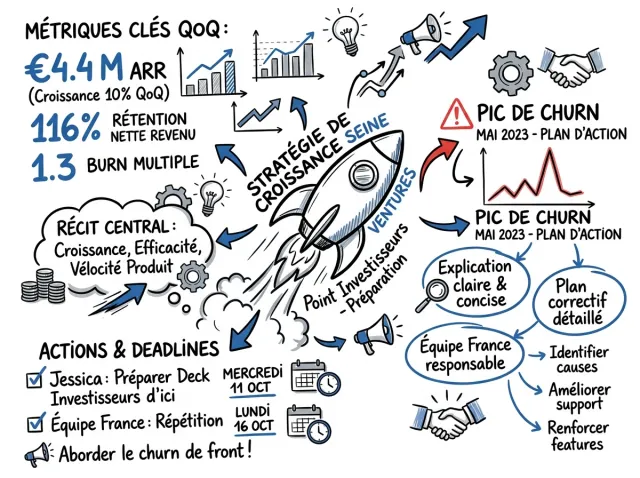 MÉTRIQUES CLÉS QOQ:
€4.4 M ARR
(Croissance 10% QoQ)
116% RÉTENTION
NETTE REVENU
1.3 BURN MULTIPLE
RÉCIT CENTRAL:
Croissance, Efficacité,
Vélocité Produit
STRATÉGIE DE
CROISSANCE SEINE
VENTURES
Point Investisseurs
- Préparation
ACTIONS & DEADLINES
Jessica: Préparer Deck
Investisseurs d'ici
MERCREDI
11 OCT
Équipe France: Répétition
LUNDI
16 OCT
Aborder le churn de front!
PIC DE CHURN
MAI 2023 - PLAN D'ACTION
PIC DE CHURN
MAI 2023 - PLAN D'ACTION
Explication
claire &
concise
Plan
correctif
détaillé
Équipe France
responsable
Identifier
causes
Améliorer
support
Renforcer
features